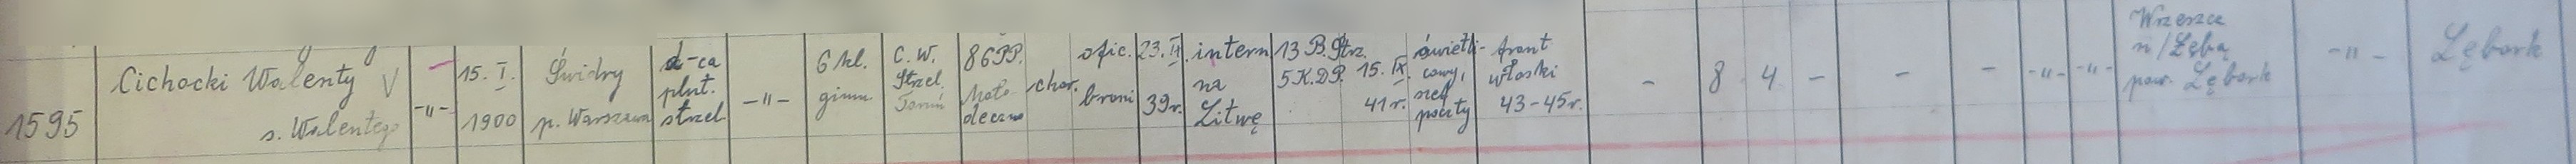 1595
Cichocki Walenty V
s. Walentego
-"-
15. I.
1900
Świdry
p. Warszawa
d-ca
plut.
strzel.
-"-
6 kl.
gimn.
C. W.
Strzel.
Toruń
86 PP.
Moło-
deczno
chor.
ofic.
broni
23. II.
39r.
intern
na
Litwę
13 B. Strz.
5 K.D.P.
15. IX.
41 r.
świetli-
cowy,
szef
poczty
front
włoski
43-45r.
-
8
4
-
-
-
-"-
-"-
Wrzeszcz
n/Łebą
pow. Lębork
-"-
Lębork